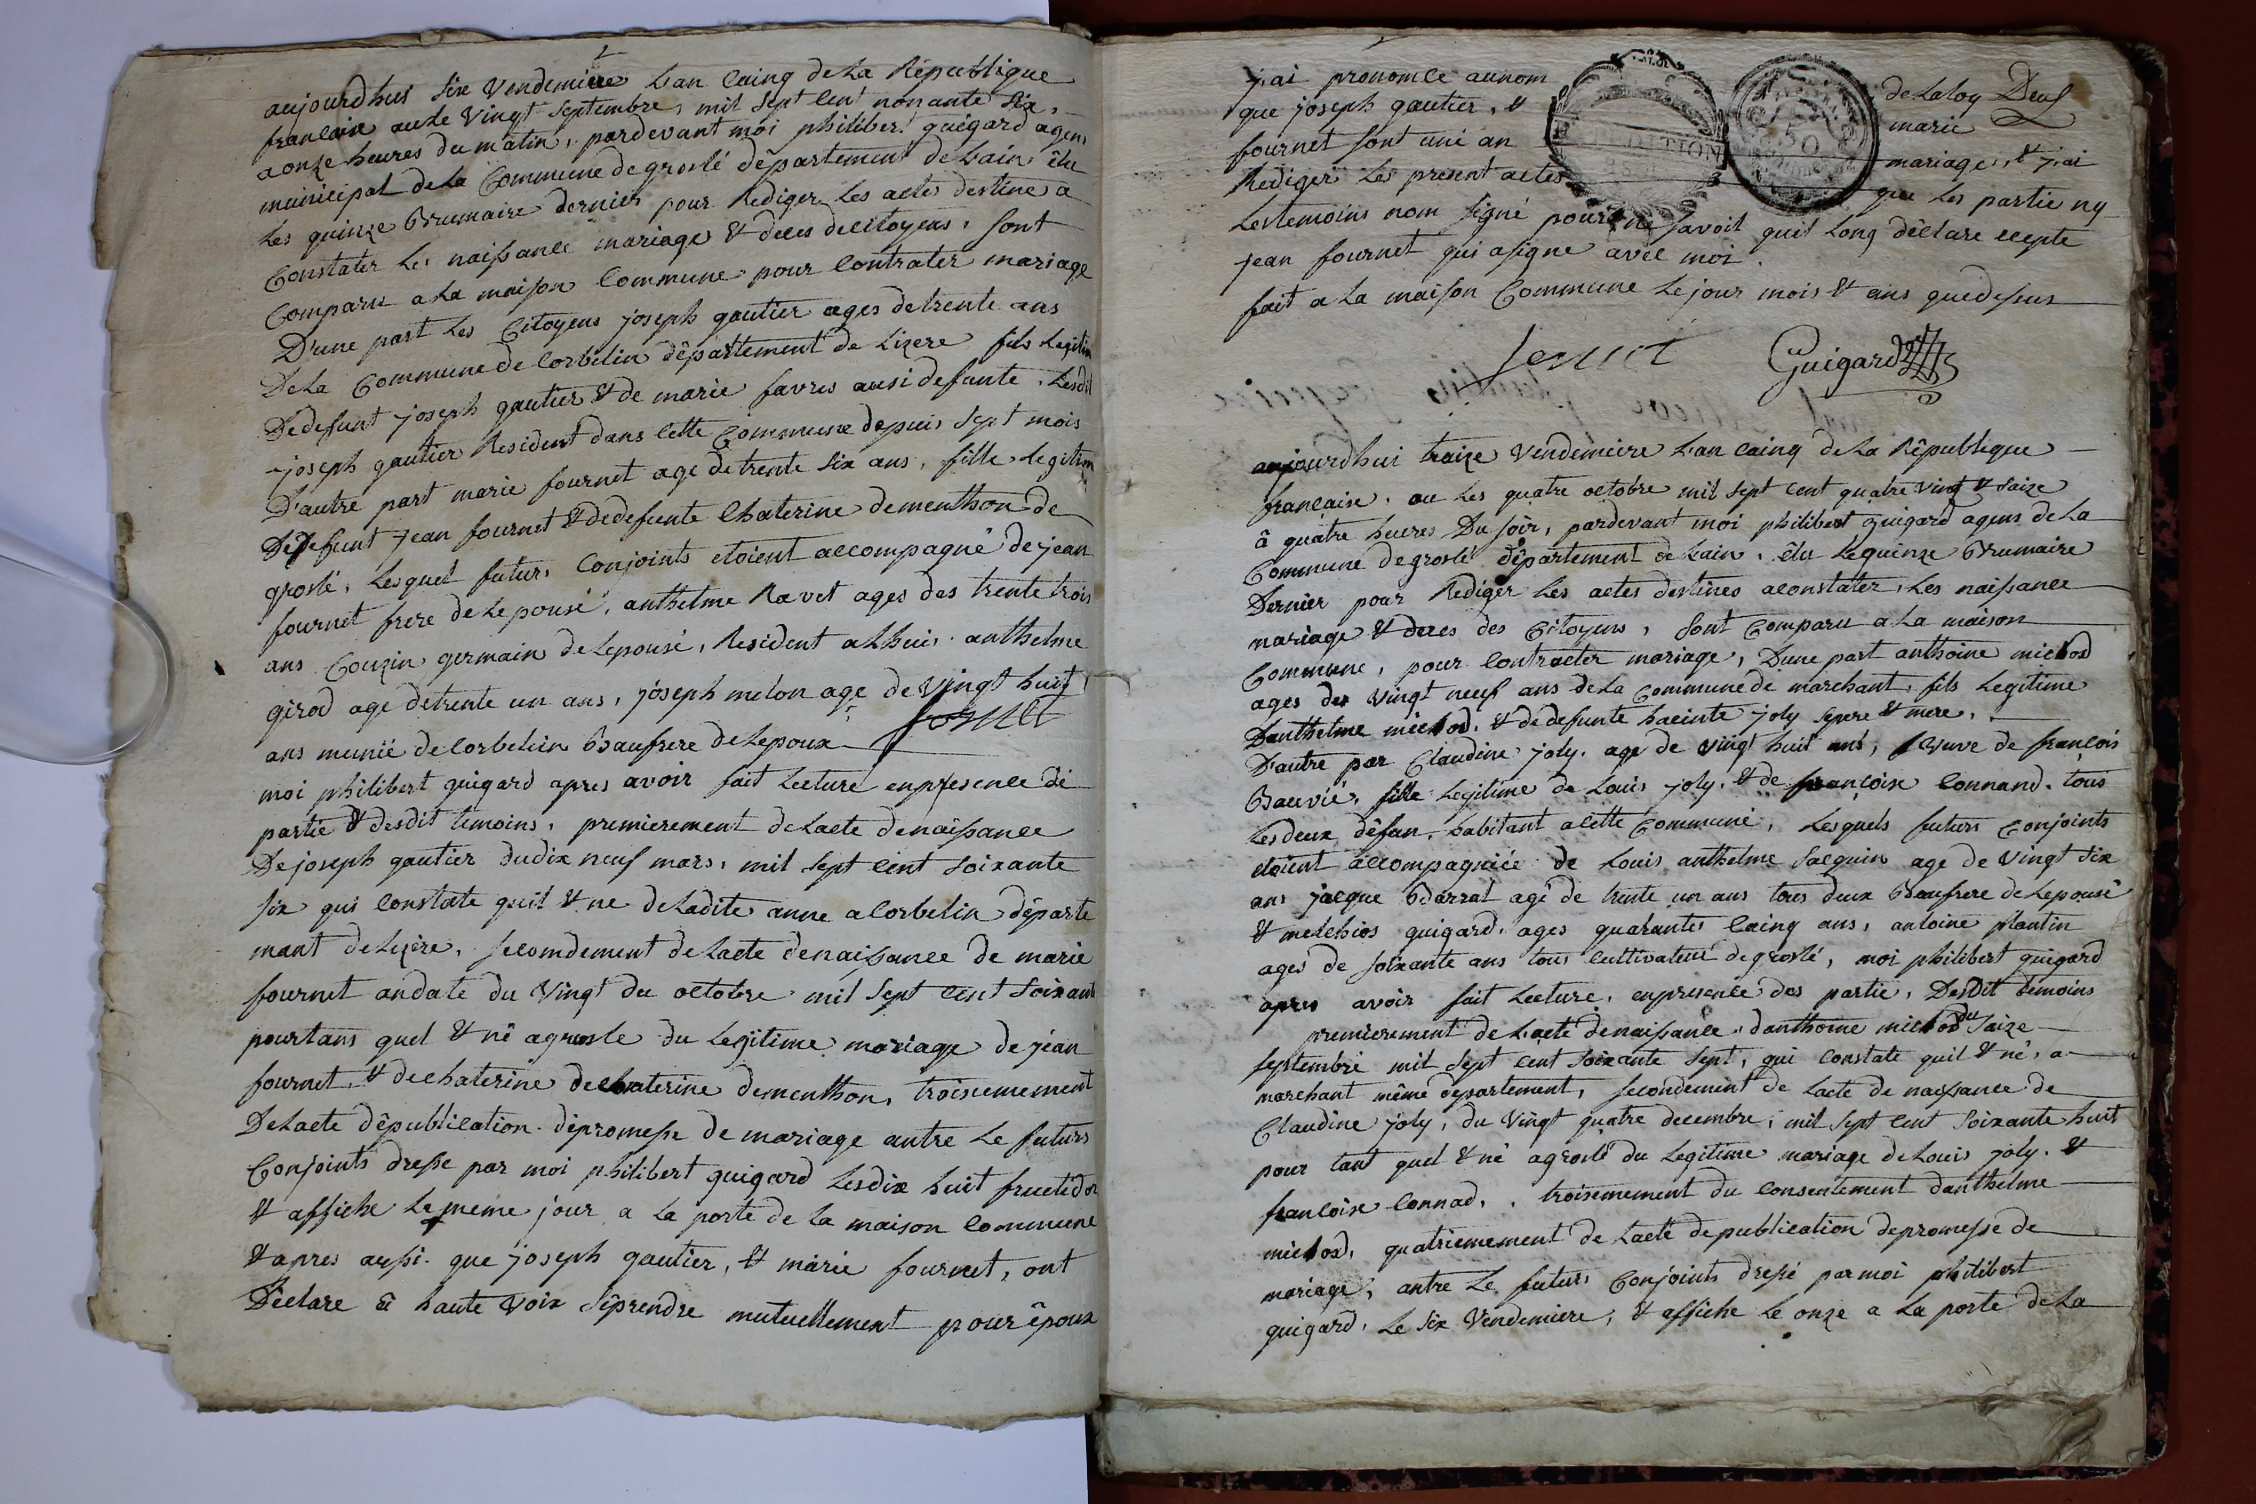 aujourdhui six vendemiere L'an Cainq de La République
francaise aux Le vingt septembre, mil sept Cent nonante six,
a onze heures du matin, pardevant moi philibert guigard agens
municipal de La Commune de groslé département de Lain élu
Les quinze Brumaire dernier pour Rediger Les actes destine a
Constater Les naissance mariage & deces de Citoyens, sont
Comparu a La maison Commune pour Contrater mariage
D'une part Les Citoyens joseph gautier ages de trente ans
De La Commune de Corbelin département de Lizere fils Legitim
De defunt joseph gautier & de marie favres ausi defunte, Lesdit
joseph gautier Resident dans Cette Commune depuis sept mois
D'autre part marie fournet age de trente six ans, fille Legitim
De defunt Jean fournet & de defunte Chaterine dementhon de
groslé, Lesquel futurs Conjoints etoient accompagné de jean
fournet frere de Lepousé, anthelme Ravet ages des trente trois
ans Couzin germain de Lepousé, Resident a Lhuis, anthelme
girod age de trente un ans, joseph melon age de vingt huit
ans munié de Corbelin Baufrere de Lepoux fornet
moi philibert guigard apres avoir fait Lecture enpresence de
partie & desdit temoins, premierement de Lacte denaissance
De joseph gautier dudix neuf mars, mil sept Cent soixante
six qui Constate quil & ne de Ladite anne a Corbelin départe
mant de Lizère, secomdement de Lacte denaissance de marie
fournet andate du vingt du octobre mil sept Cent soixant
pourtans quel & né a grosle du Legitime mariage de jean
fournet, & de chaterine de chaterine dementhon, troisiemement
De Lacte dêpublication dêpromesse de mariage antre Le futurs
Conjoints dresse par moi philibert guigard Lesdix huit fructidor
& affiche Le meme jour a La porte de La maison Commune
& apres aussi que joseph gautier, & marie fournet, ont
Déclare â haute voix sêprendre mutuellement pour êpoux
j,ai prononce aunom de Laloy Deuf
que joseph gautier, & marie
fournet sont uni an mariage, & j,ai
Rediger Les present actes que Les partie ny
Lestemoins nom signé pour ne savoit quil Lonq déclare ecepte
jean fournet qui asigne avec moi
fait a La maison Commune Lejour mois & ans quedesus
fornet Guigard
50
aujourdhui traize vendemiere L'an Cainq de La République
française, au Les quatre octobre mil sept Cent quatre vint & saize
â quatre heures Du soir, pardevant moi philibert guigard agens de La
Commune de groslé département de Lain, élu Lequinze Brumaire
Dernier pour Rediger Les actes destines aconstater, Les naissance
mariage & deces des Citoyens, sont Comparu a La maison
Commune, pour Contracter mariage, Dune part anthoine michod
ages des vingt neuf ans de La Commune de marchant, fils Legitime
Danthelme michod, & de defunte hacinte joly sepere & mere,
D'autre par Claudine joly, age de vingt huit ans, veuve de françois
Bauvié, fille Legitime de Louis joly, & de françoise Connand, tous
Les deux défan, habitant a Cette Commune, Lesquels futurs Conjoints
etoient accompagniée de Louis anthelme salquin age de vingt six
ans jacque Barral agé de trente un ans tous deux Beaufrere de Lepousé
& melchios guigard, ages quarantes Cainq ans, antoine plantin
ages de soixante ans tous cultivateur de groslé, moi philibert guigard
apres avoir fait Lecture, enpresence des partie, Desdit temoins
premierement de Lacte denaissance, danthoine michod du saize
septembre mil sept Cent soixante sept, qui Constate quil & né, a
marchant même departement, secondement de Lacte de naissance de
Claudine joly, du vingt quatre decembre, mil sept Cent soixante huit
pour tant quel & né agroslé du Legitime mariage de Louis joly, &
françoise Connad, troisiemement du Consentement danthelme
michod, quatriemement de Lacte de publication depromesse de
mariage, antre Le futurs Conjoints dressé par moi philibert
guigard, Le six vendemiere, & affiche Le onze a La porte de La